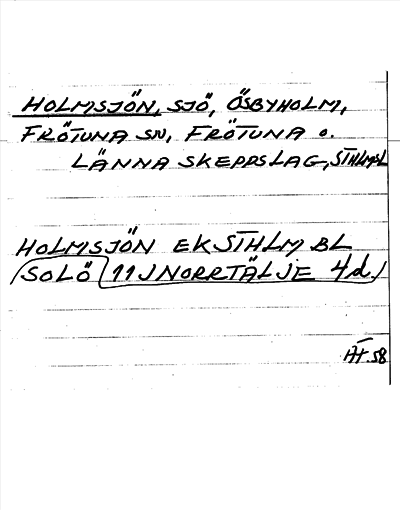 HOLMSJÖN, SJÖ, ÖSBYHOLM,
FRÖTUNA SN, FRÖTUNA O.
LÄNNA SKEPPSLAG, STHLMSL
HOLMSJÖN EK STHLM BL
(SOLÖ (11J NORRTÄLJE 4d.)
HT.58